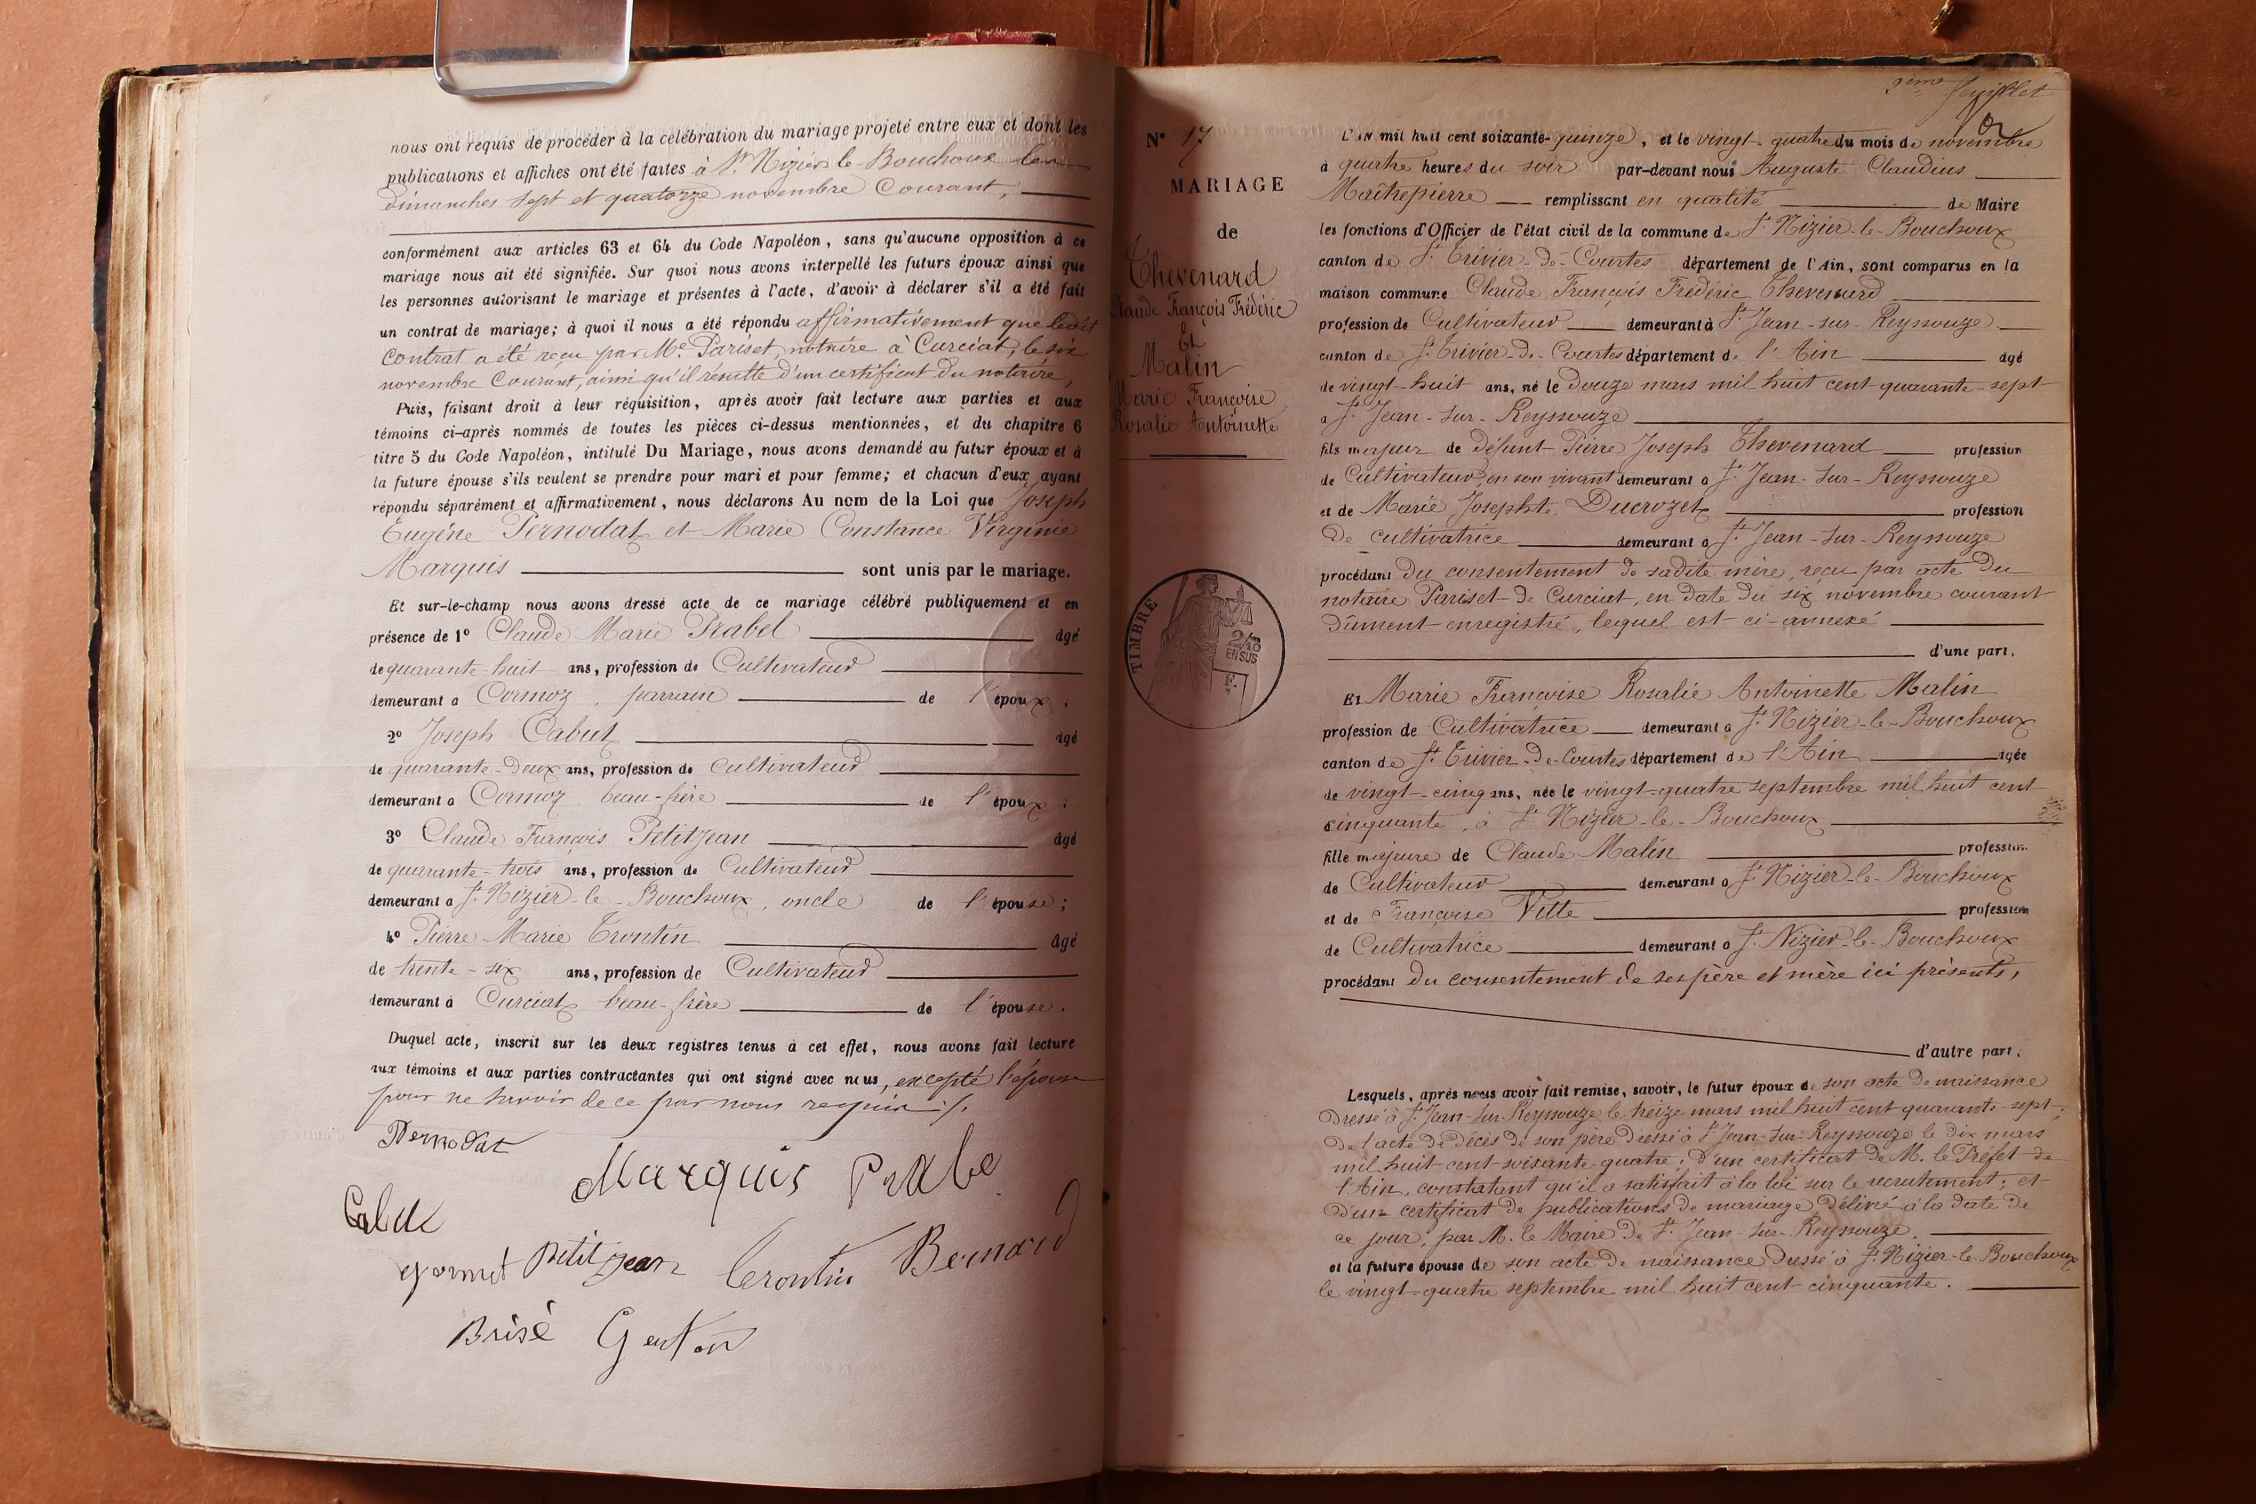 nous ont requis de procéder à la célébration du mariage projeté entre eux et dont les
publications et affiches ont été faites à St. Nizier-le-Bouchoux les
dimanches sept et quatorze novembre Courant,
conformément aux articles 63 et 64 du Code Napoléon, sans qu'aucune opposition à ce
mariage nous ait été signifiée. Sur quoi nous avons interpellé les futurs époux ainsi que
les personnes autorisant le mariage et présentes à l'acte, d'avoir à déclarer s'il a été fait
un contrat de mariage; à quoi il nous a été répondu affirmativement que ledit
Contrat a été reçu par Me. Pariset, notaire à Curciat, le six
novembre Courant, ainsi qu'il résulte d'un certificat du notaire,
Puis, faisant droit à leur réquisition, après avoir fait lecture aux parties et aux
témoins ci-après nommés de toutes les pièces ci-dessus mentionnées, et du chapitre 6
titre 5 du Code Napoléon, intitulé Du Mariage, nous avons demandé au futur époux et à
la future épouse s'ils veulent se prendre pour mari et pour femme; et chacun d'eux ayant
répondu séparément et affirmativement, nous déclarons Au nom de la Loi que Joseph
Eugène Pernodat et Marie Constance Virginie
Marquis sont unis par le mariage.
Et sur-le-champ nous avons dressé acte de ce mariage célébré publiquement et en
présence de 1° Claude Marie Prabel âgé
de quarante-huit ans, profession de Cultivateur
demeurant à Cormoz, parrain de l'époux;
2° Joseph Cabut âgé
de quarante-deux ans, profession de Cultivateur
demeurant à Cormoz beau-frère de l'époux;
3° Claude François Petitjean âgé
de quarante-trois ans, profession de Cultivateur
demeurant à St. Nizier-le-Bouchoux, oncle de l'épouse;
4° Pierre Marie Trontin âgé
de trente-six ans, profession de Cultivateur
demeurant à Curciat beau-frère de l'épouse.
Duquel acte, inscrit sur les deux registres tenus à cet effet, nous avons fait lecture
aux témoins et aux parties contractantes qui ont signé avec nous, excepté l'épouse
pour ne savoir de ce par nous requise ./.
Pernodat
Marquis Prabe
Cabut
petit jean Trontin Bernard
Brisé Genton
9ème feuillet
N° 17
MARIAGE
de
Thevenard
Claude François Frédéric
Et
Malin
Marie Françoise
Rosalie Antoinette
TIMBRE
2/10
EN SUS
L'AN mil huit cent soixante-quinze, et le vingt-quatre du mois de novembre
à quatre heures du soir par-devant nous Auguste Claudius
Maîtrepierre remplissant en qualité de Maire
les fonctions d'Officier de l'état civil de la commune de St. Nizier-le-Bouchoux
canton de St. Trivier-de-Courtes département de l'Ain, sont comparus en la
maison commune Claude François Frédéric Thevenard
profession de Cultivateur demeurant à St. Jean-sur-Reyssouze
canton de St. Trivier-de-Courtes département de l'Ain âgé
de vingt-huit ans, né le Douze mars mil huit cent quarante-sept
à St. Jean-sur-Reyssouze
fils majeur de défunt Pierre Joseph Thevenard profession
de Cultivateur, en son vivant demeurant à St. Jean-sur-Reyssouze
et de Marie Josephte Ducrozet profession
De cultivatrice demeurant à St. Jean-sur-Reyssouze
procédant du consentement de sadite mère, reçu par acte du
notaire Pariset de Curciat, en date du six novembre courant
Dûment enregistré, lequel est ci-annexé
d'une part.
Et Marie Françoise Rosalie Antoinette Malin
profession de Cultivatrice demeurant à St. Nizier-le-Bouchoux
canton de St. Trivier-de-Courtes département de l'Ain âgée
de vingt-cinq ans, née le vingt-quatre septembre mil huit cent
cinquante, à St. Nizier-le-Bouchoux
fille majeure de Claude Malin profession
de Cultivateur demeurant à St. Nizier-le-Bouchoux
et de Françoise Vitte profession
de Cultivatrice demeurant à St. Nizier-le-Bouchoux
procédant du consentement de ses père et mère ici présents,
d'autre part.
Lesquels, après nous avoir fait remise, savoir, le futur époux de son acte de naissance
Dressé à St. Jean-sur-Reyssouze le treize mars mil huit cent quarante-sept;
De l'acte de décès de son père dressé à St. Jean-sur-Reyssouze le dix mars
mil huit cent soixante-quatre; d'un certificat de M. le Préfet de
l'Ain, constatant qu'il a satisfait à la loi sur le recrutement; et
D'un certificat de publications de mariage délivré à la date de
ce jour, par M. le Maire de St. Jean-sur-Reyssouze.
et la future épouse de son acte de naissance dressé à St. Nizier-le-Bouchoux
le vingt-quatre septembre mil huit cent cinquante.